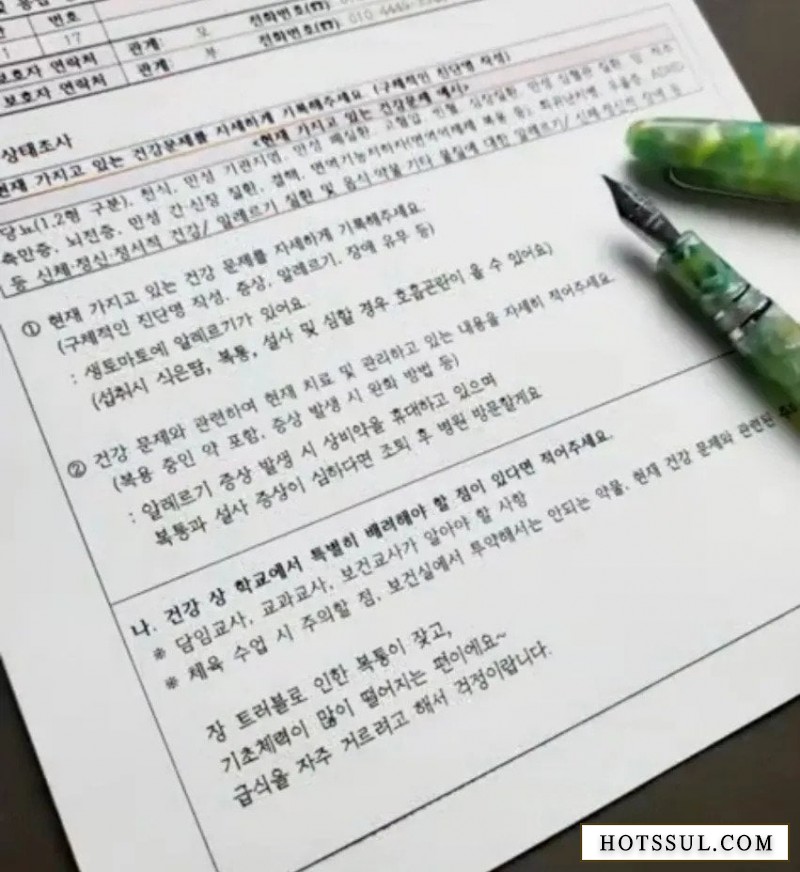 번호
17
관계: 모 전화번호(☎)
보호자 연락처 관계: 부 전화번호(☎) 010
보호자 연락처
상태조사
현재 가지고 있는 건강문제를 자세하게 기록해주세요. (구체적인 진단명 작성)
<현재 가지고 있는 건강문제 예시>
당뇨(1,2형 구분), 천식, 만성 기관지염, 만성 폐질환, 고혈압, 빈혈, 심장질환, 만성 심혈관 질환, 암, 척추
측만증, 뇌전증, 만성 간·신장 질환, 결핵, 면역기능저하자(면역억제제 복용 등), 희귀난치병, 우울증, ADHD
등 신체·정신·정서적 건강/ 알레르기 질환 및 음식·약물·기타 물질에 대한 알레르기/ 신체·정신적 장애 등
① 현재 가지고 있는 건강 문제를 자세하게 기록해주세요.
(구체적인 진단명 작성, 증상, 알레르기, 장애 유무 등)
: 생토마토에 알레르기가 있어요.
(섭취시 식은땀, 복통, 설사 및 심할 경우 호흡곤란이 올 수 있어요)
② 건강 문제와 관련하여 현재 치료 및 관리하고 있는 내용을 자세히 적어주세요.
(복용 중인 약 포함, 증상 발생 시 완화 방법 등)
: 알레르기 증상 발생 시 상비약을 휴대하고 있으며
복통과 설사 증상이 심하다면 조퇴 후 병원 방문할게요
나. 건강 상 학교에서 특별히 배려해야 할 점이 있다면 적어주세요.
※ 담임교사, 교과교사, 보건교사가 알아야 할 사항
※ 체육 수업 시 주의할 점, 보건실에서 투약해서는 안되는 약물, 현재 건강 문제와 관련된
장 트러블로 인한 복통이 잦고,
기초체력이 많이 떨어지는 편이에요~
급식을 자주 거르려고 해서 걱정이랍니다.
HOTSSUL.COM